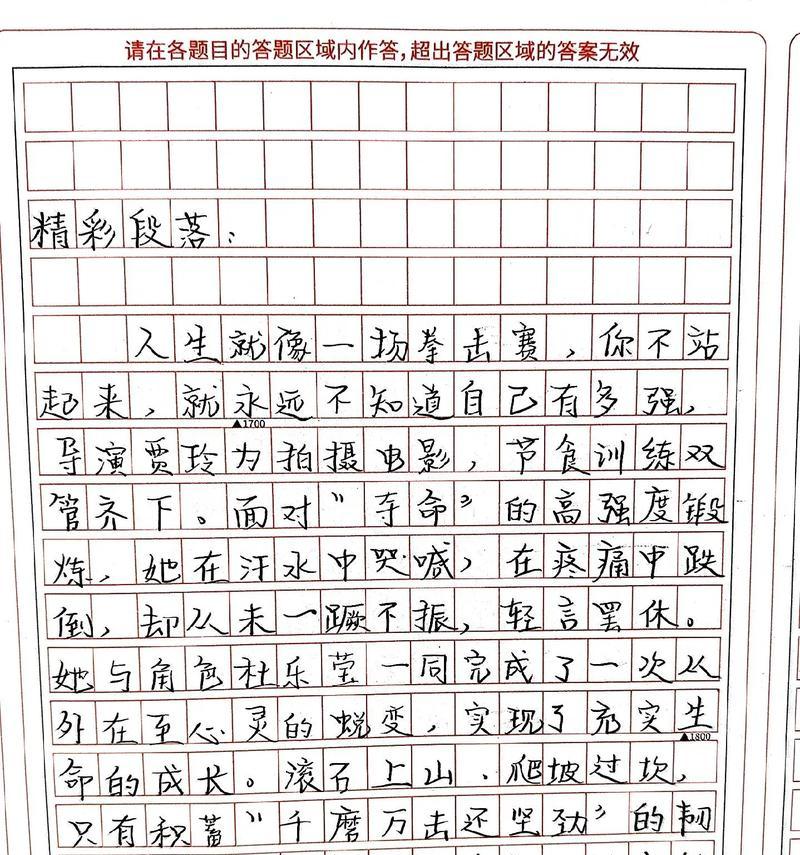 请在各题目的答题区域内作答,超出答题区域的答案无效
精彩段落：
人生就像一场拳击赛，你不站
起来，就永远不知道自己有多强，
▲1700
导演贾玲为拍摄电影，节食训练双
管齐下。面对"夺命"的高强度锻
炼，她在汗水中哭喊，在疼痛中跌
倒，却从未一蹶不振，轻言罢休。
她与角色杜乐莹一同完成了一次从
外在至心灵的蜕变，实现了充实生
▲1800
命的成长。滚石上山、爬坡过坎，
只有积蓄"千磨万击还坚劲"的韧